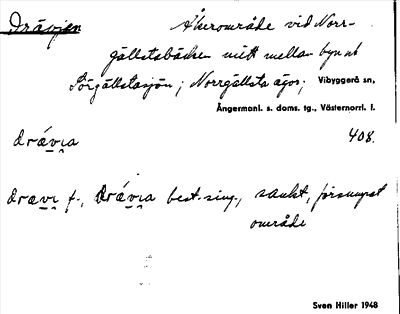 Drävjan Åkerområde vid Norr-
gällstabäcken mitt mellan byn o.
Sörgällstasjön; Norrgällsta ägor; Vibyggerå sn,
Ångermanl. s. doms. tg., Västernorrl. l.
drävi̯a 408.
drævi̯ f., drävi̯a best. sing., sankt, försumpat
område
Sven Hiller 1948